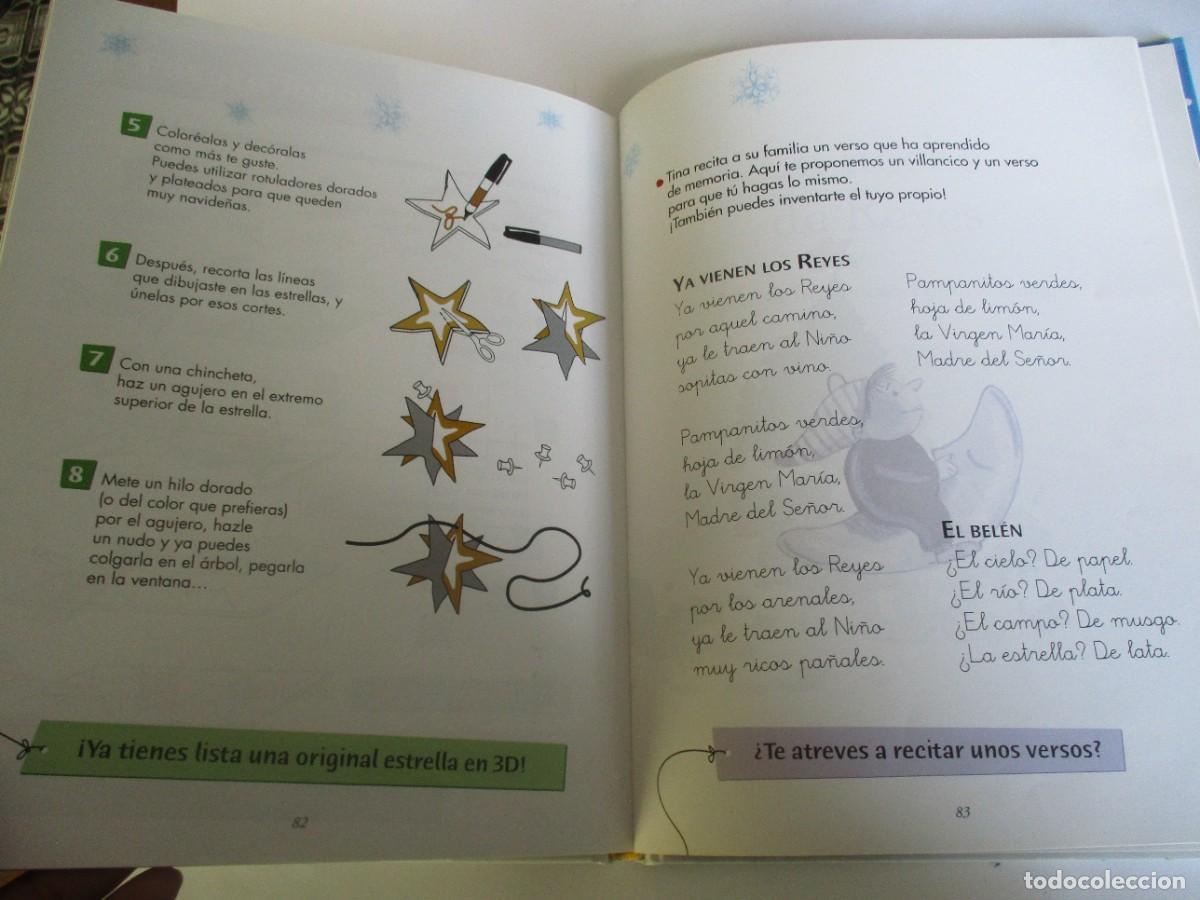 5
Coloréalas y decóralas
como más te guste.
Puedes utilizar rotuladores dorados
y plateados para que queden
muy navideñas.
6
Después, recorta las líneas
que dibujaste en las estrellas, y
únelas por esos cortes.
7
Con una chincheta,
haz un agujero en el extremo
superior de la estrella.
8
Mete un hilo dorado
(o del color que prefieras)
por el agujero, hazle
un nudo y ya puedes
colgarla en el árbol, pegarla
en la ventana...
¡Ya tienes lista una original estrella en 3D!
82
Tina recita a su familia un verso que ha aprendido
de memoria. Aquí te proponemos un villancico y un verso
para que tú hagas lo mismo.
¡También puedes inventarte el tuyo propio!
YA VIENEN LOS REYES
Ya vienen los Reyes
por aquel camino,
ya le traen al Niño
sopitas con vino.
Pampanitos verdes,
hoja de limón,
la Virgen María,
Madre del Señor.
Ya vienen los Reyes
por los arenales,
ya le traen al Niño
muy ricos pañales.
Pampanitos verdes,
hoja de limón,
la Virgen María,
Madre del Señor.
EL BELÉN
¿El cielo? De papel.
¿El río? De plata.
¿El campo? De musgo.
¿La estrella? De lata.
¿Te atreves a recitar unos versos?
83
todocoleccion